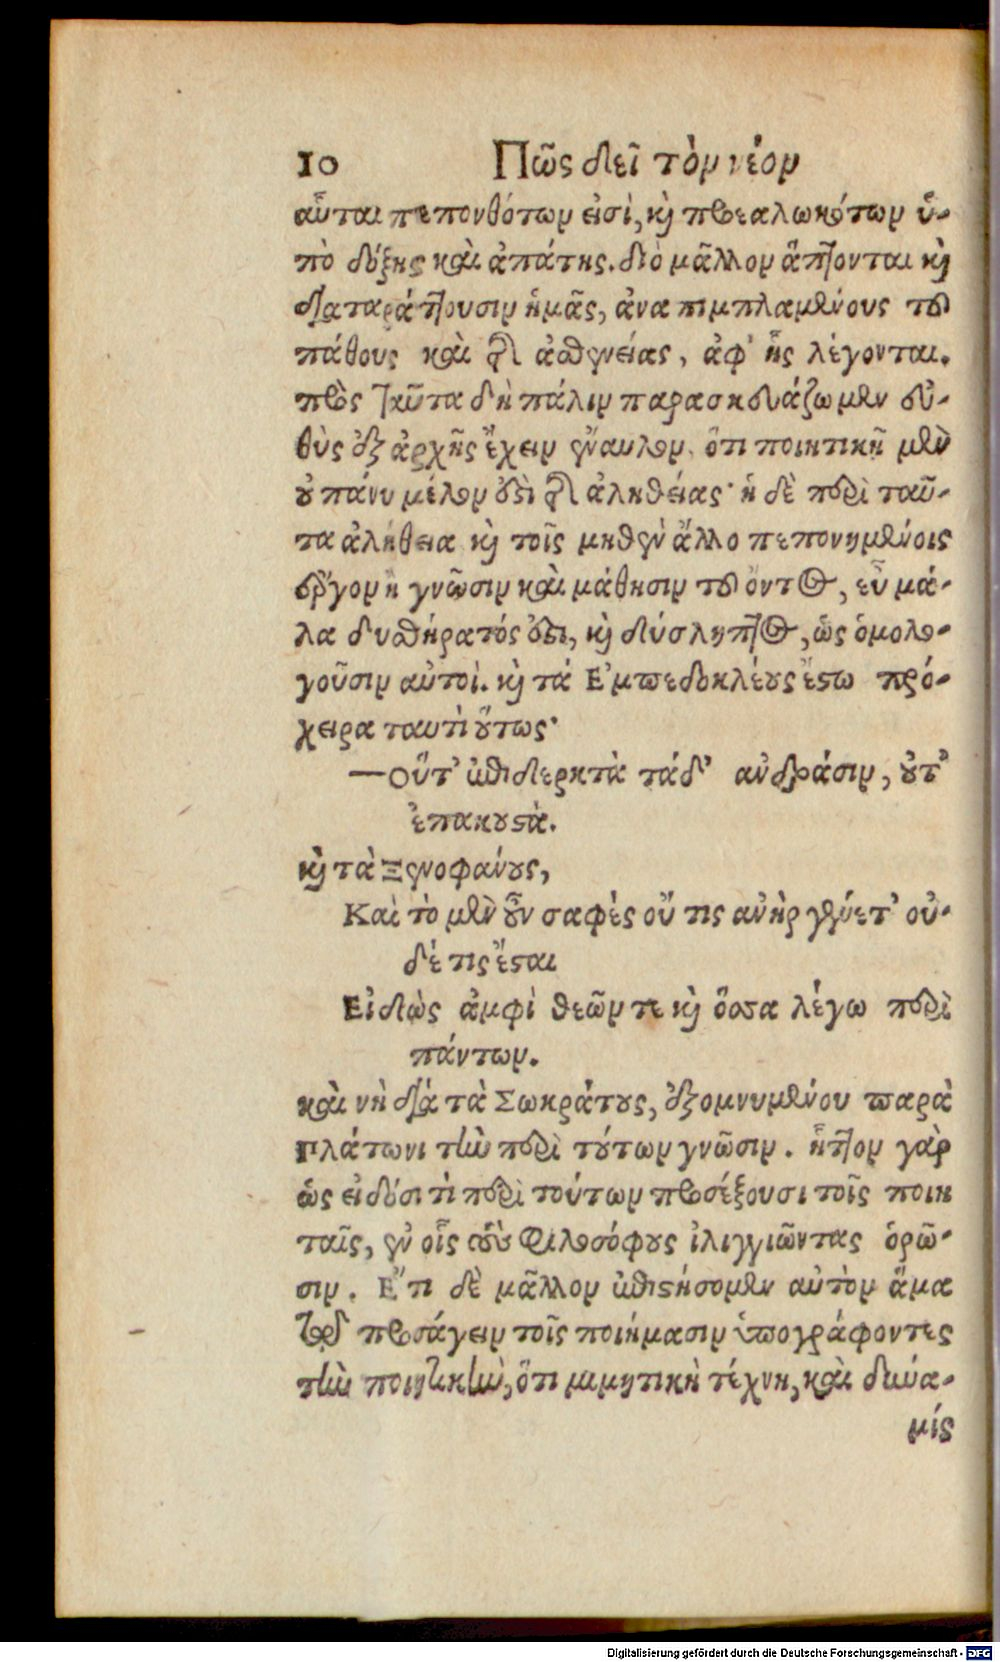 10 Πῶς δεῖ τὸν νέον
αὗται πεπονθότων εἰσὶ, καὶ προεαλωκότων ὑ-
πὸ δόξης καὶ ἀπάτης. διὸ μᾶλλον ἅπτονται καὶ
διαταράττουσιν ἡμᾶς, ἀναπιμπλαμένους τοῦ
πάθους καὶ τῆς ἀσθενείας, ἀφ' ἧς λέγονται.
πρὸς ταῦτα δὴ πάλιν παρασκευάζωμεν εὐ-
θὺς ἐξ ἀρχῆς ἔχειν ἔναυλον, ὅτι ποιητικῇ μὲν
οὐ πάνυ μέλον ἐστὶ τῆς ἀληθείας· ἡ δὲ περὶ ταῦ-
τα ἀλήθεια καὶ τοῖς μηθὲν ἄλλο πεπονημένοις
ἔργον ἢ γνῶσιν καὶ μάθησιν τοῦ ὄντος, εὖ μά-
λα δυσθήρατός ἐστι, καὶ δύσληπτος, ὡς ὁμολο-
γοῦσιν αὐτοί. καὶ τά Ἐμπεδοκλέους ἔστω πρό-
χειρα ταυτὶ οὕτως·
—Οὔτ' ἐπιδερκτὰ τάδ' ἀνδράσιν, οὔτ'
ἐπακουστὰ.
καὶ τὰ Ξενοφάνους,
Καὶ τὸ μὲν οὖν σαφὲς οὔ τις ἀνὴρ γένετ' οὐ-
δέ τις ἔσται
Εἰδὼς ἀμφὶ θεῶν τε καὶ ὅσσα λέγω περὶ
πάντων.
καὶ νὴ Δία τὰ Σωκράτους, ἐξομνυμένου παρὰ
Πλάτωνι τὴν περὶ τούτων γνῶσιν. ἧττον γὰρ
ὡς εἰδόσι τὶ περὶ τούτων προσέξουσι τοῖς ποιη
ταῖς, ἐν οἷς τοὺς φιλοσόφους ἰλιγγιῶντας ὁρῶ-
σιν. Ἔτι δὲ μᾶλλον ἐπιστήσομεν αὐτὸν ἅμα
τῷ προσάγειν τοῖς ποιήμασιν ὑπογράφοντες
τὴν ποιητικὴν, ὅτι μιμητικὴ τέχνη, καὶ δύνα-
μίς
Digitalisierung gefördert durch die Deutsche Forschungsgemeinschaft - DFG